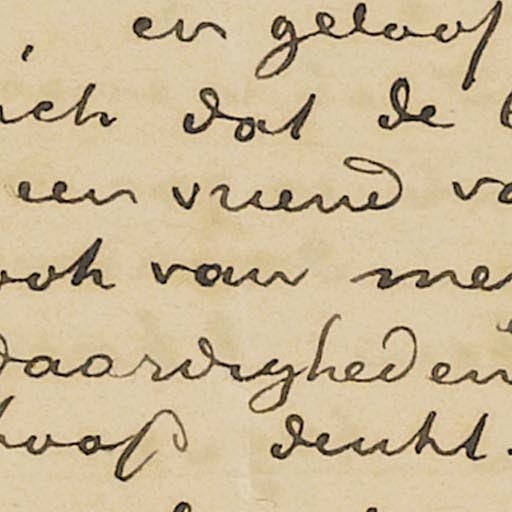 , en geloof
ich dat de
een vriend va
ook van me
daardigheden
hoofd denkt.